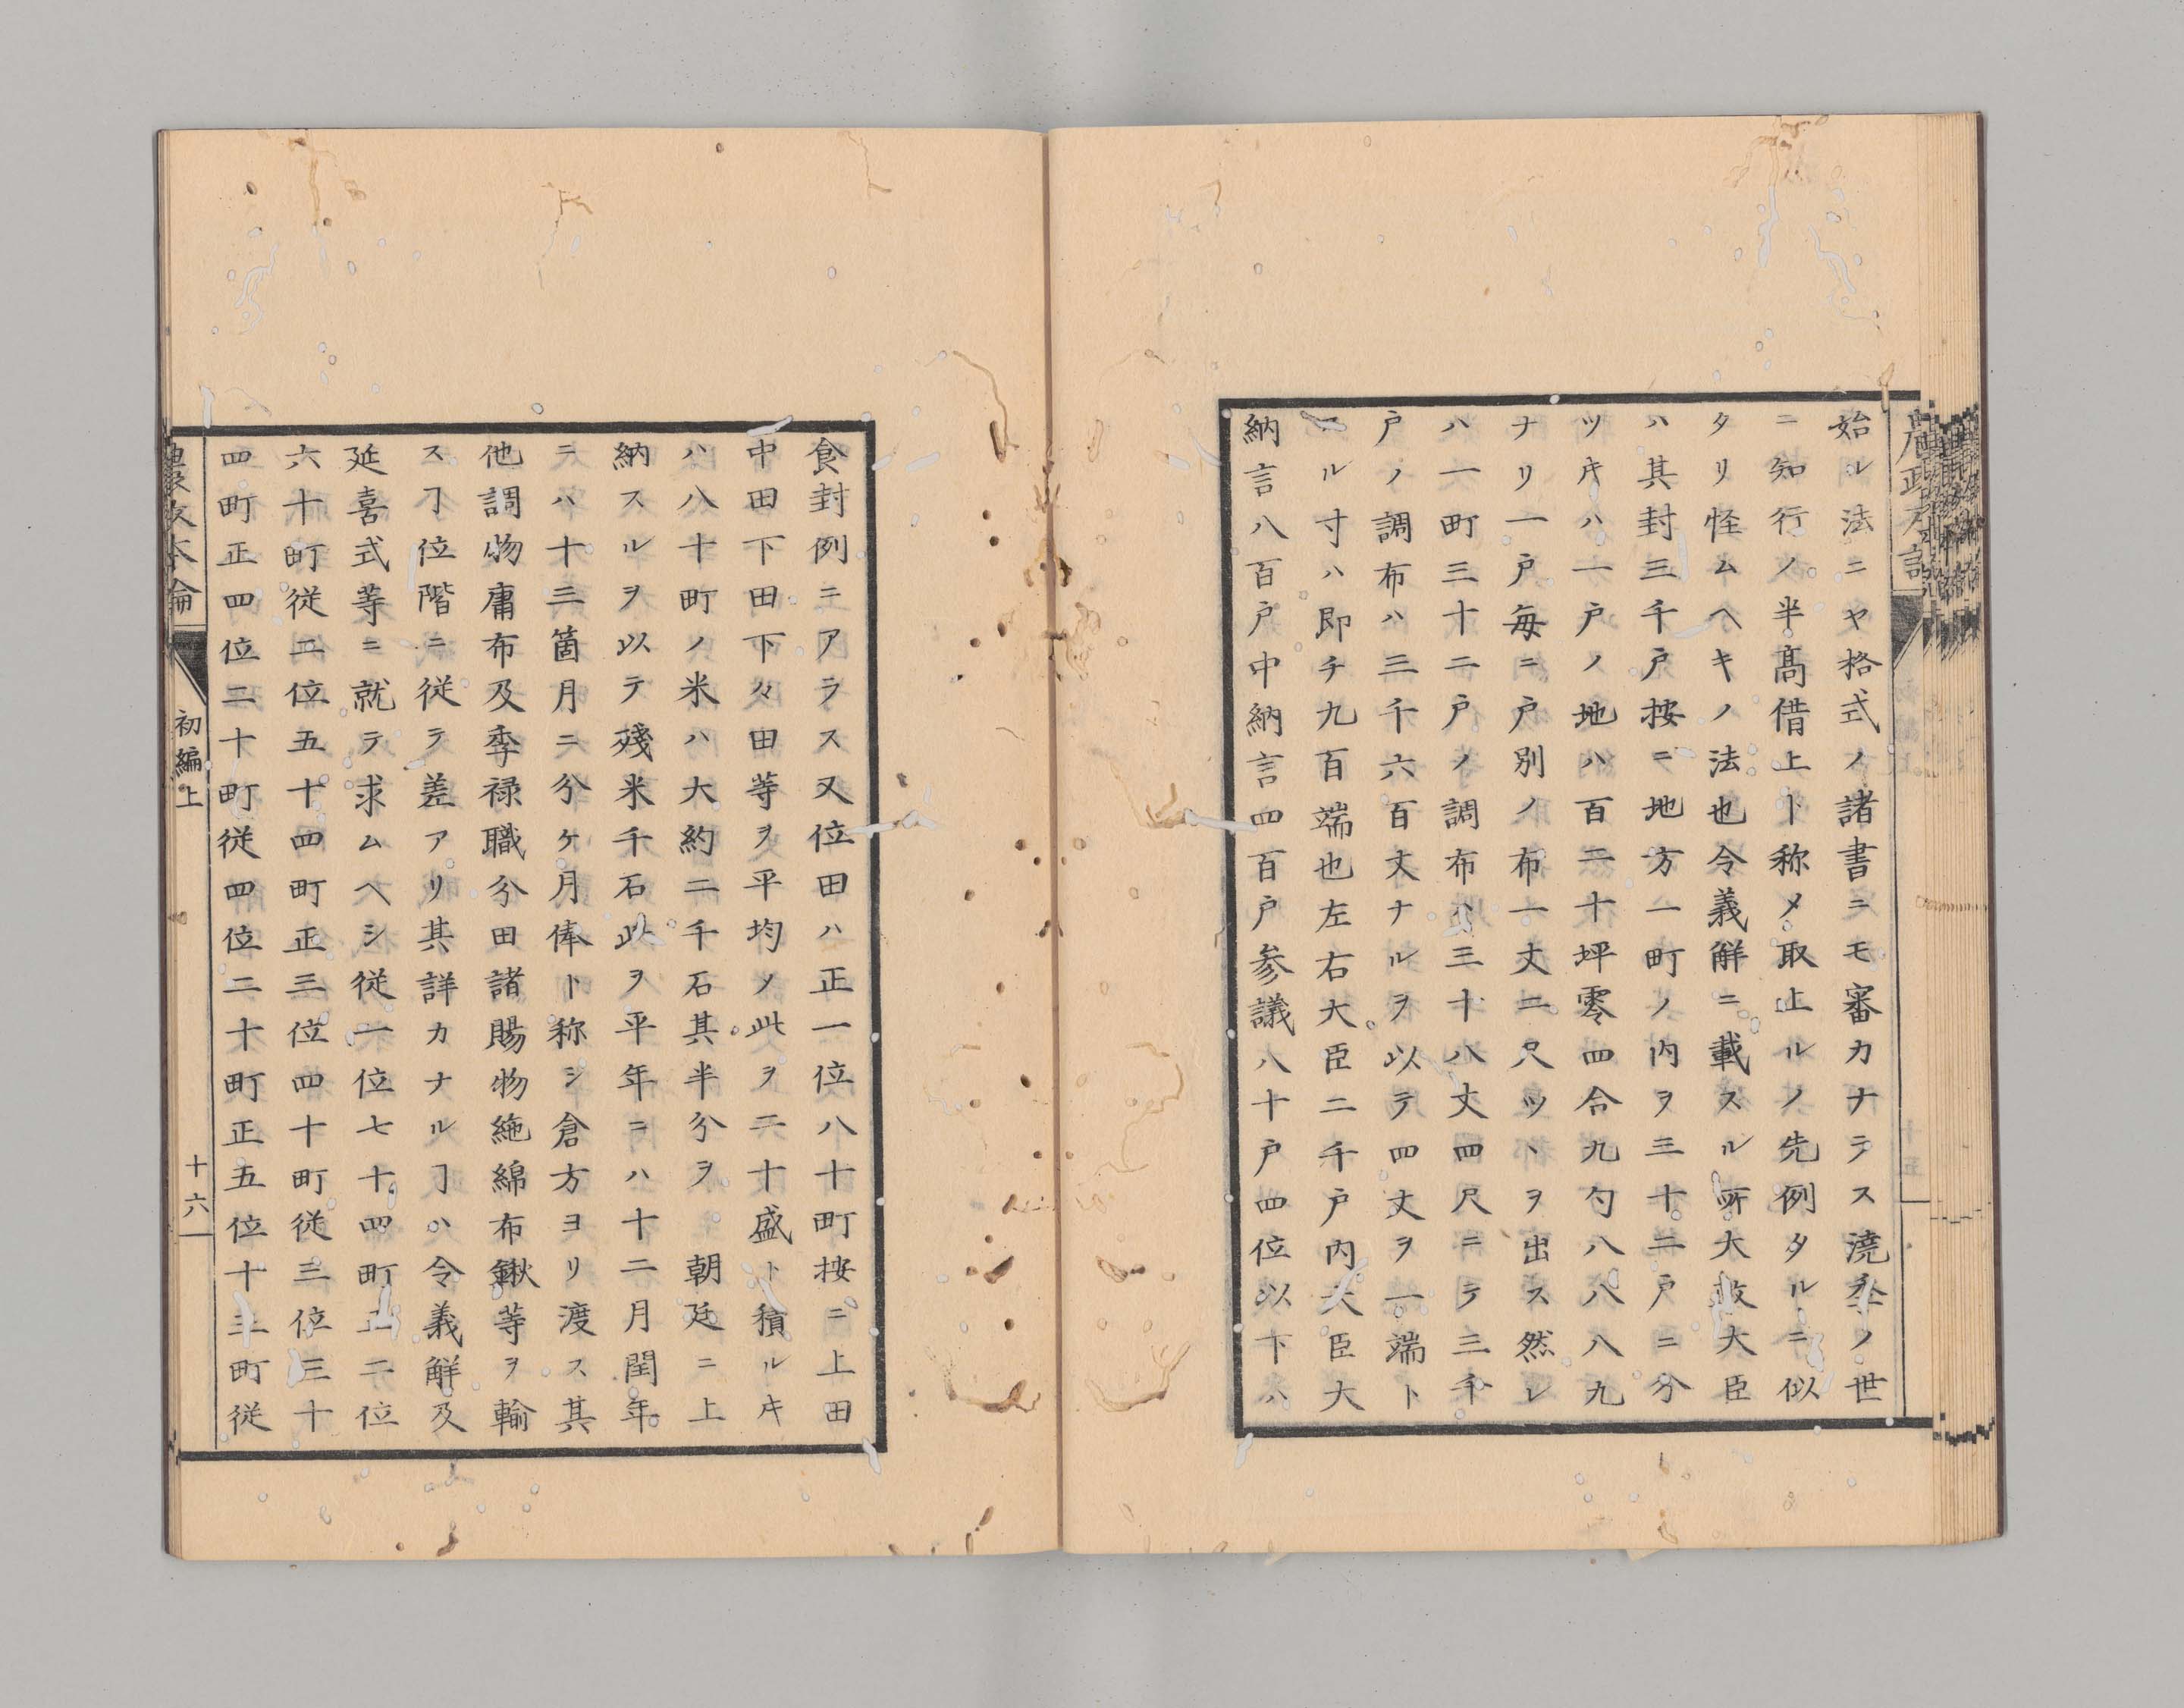 始ル法ニヤ格式ノ諸書ニモ審カナラス澆季ノ世
ニ知行ノ半髙借上ト称メ取上ルノ先例タルニ似
タリ怪ムヘキノ法也令義解ニ載スル所大政大臣
ハ其封三千戸按ニ地方一町ノ内ヲ三十二戸ニ分
ツキハ一戸ノ地ハ百二十坪零四合九勺八八八九
ナリ一戸毎ニ戸別ノ布一丈二尺ツヽヲ出ス然レ
ハ一町三十二戸ノ調布ハ三十八丈四尺ニテ三千
戸ノ調布ハ三千六百丈ナルヲ以テ四丈ヲ一端ト
スル寸ハ即チ九百端也左右大臣二千戸内大臣大
納言八百戸中納言四百戸参議八十戸四位以下ハ
食封例ニアラス又位田ハ正一位八十町按ニ上田
中田下田下々田等ヲ平均メ此ヲ二十盛ト積ルキ
ハ八十町ノ米ハ大約二千石其半分ヲ 朝廷ニ上
納スルヲ以テ殘米千石此ヲ平年ニハ十二月閏年
ニハ十三箇月ニ分ケ月俸ト称シ倉方ヨリ渡ス其
他調物庸布及季禄職分田諸賜物絁綿布鍬等ヲ輸
スヿ位階ニ従テ差アリ其詳カナルヿハ令義解及
延喜式等ニ就テ求ムヘシ従一位七十四町正二位
六十町従二位五十四町正三位四十町従三位三十
四町正四位二十町従四位二十町正五位十二町従
農政本論
初編上
十六